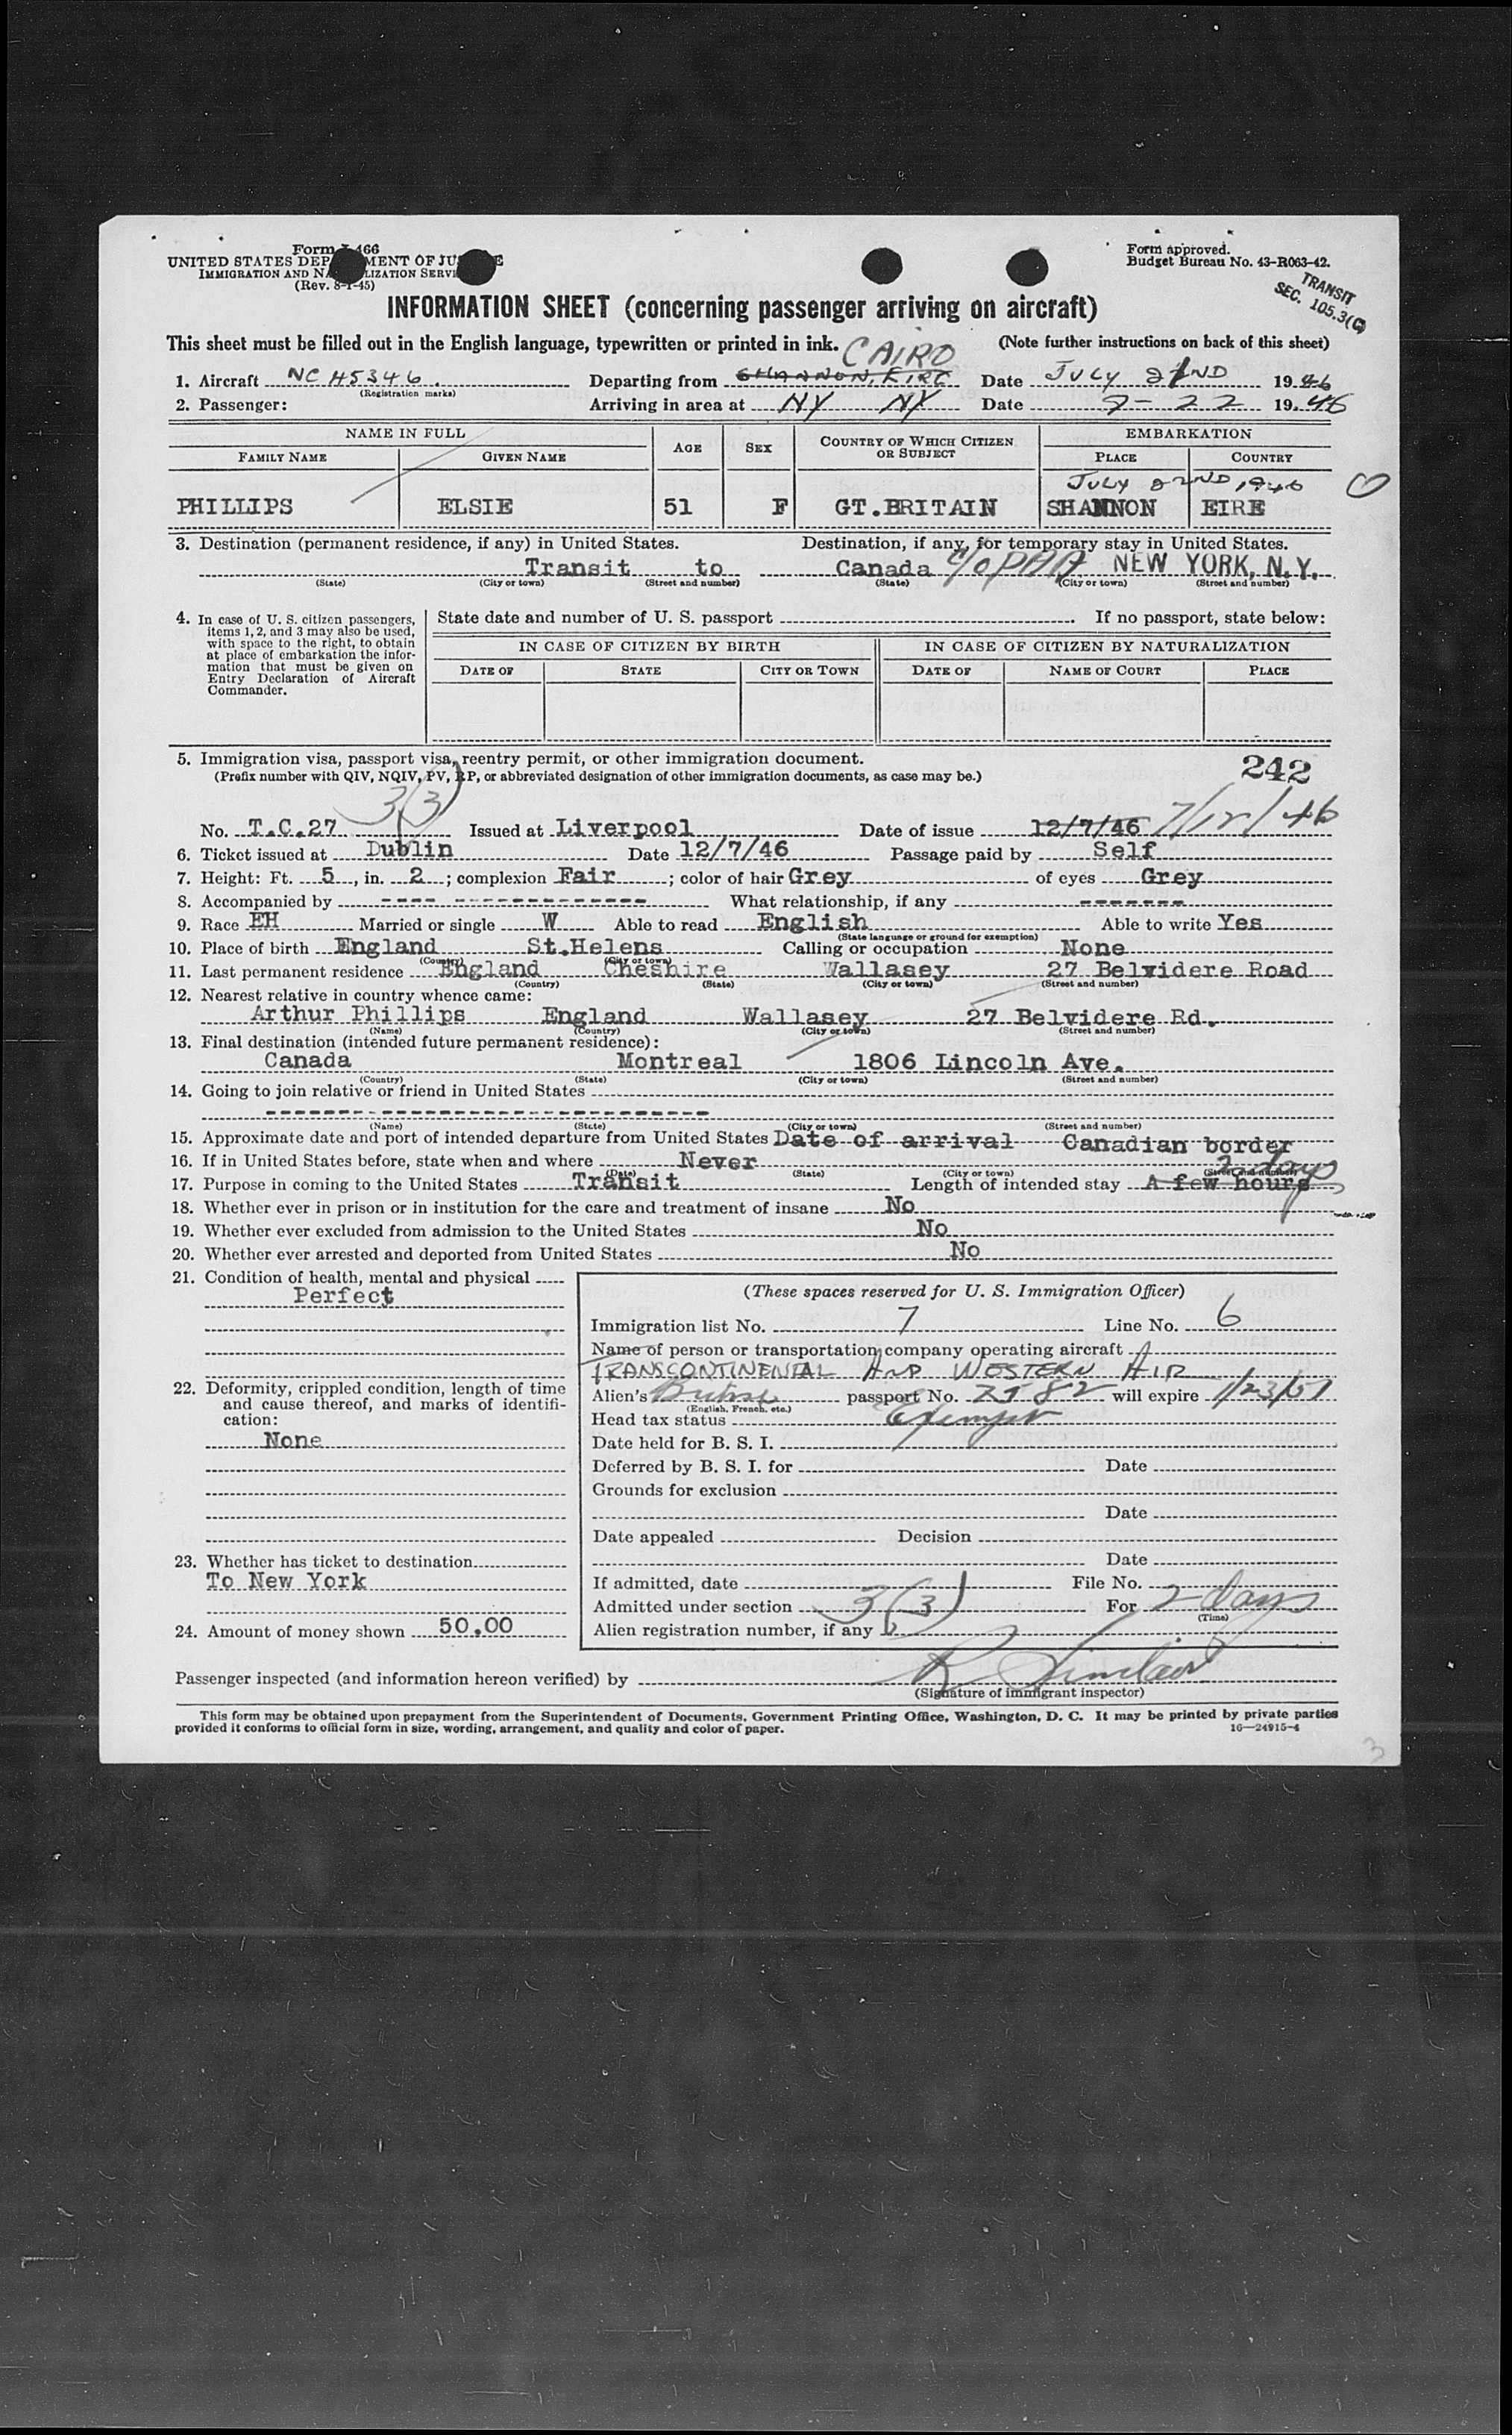 Form I-466
UNITED STATES DEPARTMENT OF JUSTICE
IMMIGRATION AND NATURALIZATION SERVICE
(Rev. 8-1-45)
Form approved.
Budget Bureau No. 43-R063-42.
TRANSIT
SEC. 105.3(C)
INFORMATION SHEET (concerning passenger arriving on aircraft)
This sheet must be filled out in the English language, typewritten or printed in ink. (Note further instructions on back of this sheet)
CAIRO
1. Aircraft NC 45346. Departing from SHANNON, EIRE Date JULY 21ND 1946
(Registration marks)
2. Passenger: Arriving in area at NY NY Date 7-22 1946
NAME IN FULL AGE SEX COUNTRY OF WHICH CITIZEN OR SUBJECT EMBARKATION
FAMILY NAME GIVEN NAME PLACE COUNTRY
JULY 22ND 1946
PHILLIPS ELSIE 51 F GT.BRITAIN SHANNON EIRE
3. Destination (permanent residence, if any) in United States. Destination, if any, for temporary stay in United States.
Transit to Canada c/o PAA NEW YORK, N.Y.
(State) (City or town) (Street and number) (State) (City or town) (Street and number)
4. In case of U. S. citizen passengers, items 1, 2, and 3 may also be used, with space to the right, to obtain at place of embarkation the information that must be given on Entry Declaration of Aircraft Commander.
State date and number of U. S. passport If no passport, state below:
IN CASE OF CITIZEN BY BIRTH IN CASE OF CITIZEN BY NATURALIZATION
DATE OF STATE CITY OR TOWN DATE OF NAME OF COURT PLACE
5. Immigration visa, passport visa, reentry permit, or other immigration document.
(Prefix number with QIV, NQIV, PV, RP, or abbreviated designation of other immigration documents, as case may be.)
242
3(3)
No. T.C.27 Issued at Liverpool Date of issue 12/7/46 7/12/46
6. Ticket issued at Dublin Date 12/7/46 Passage paid by Self
7. Height: Ft. 5, in. 2; complexion Fair; color of hair Grey of eyes Grey
8. Accompanied by ---- What relationship, if any -------
9. Race EH Married or single W Able to read English Able to write Yes
(State language or ground for exemption)
10. Place of birth England St.Helens Calling or occupation None
(Country) (City or town)
11. Last permanent residence England Cheshire Wallasey 27 Belvidere Road
(Country) (State) (City or town) (Street and number)
12. Nearest relative in country whence came:
Arthur Phillips England Wallasey 27 Belvidere Rd.
(Name) (Country) (City or town) (Street and number)
13. Final destination (intended future permanent residence):
Canada Montreal 1806 Lincoln Ave.
(Country) (State) (City or town) (Street and number)
14. Going to join relative or friend in United States
(Name) (State) (City or town) (Street and number)
15. Approximate date and port of intended departure from United States Date of arrival Canadian border
16. If in United States before, state when and where Never
(Date) (State) (City or town) (Street and number)
2 days
17. Purpose in coming to the United States Transit Length of intended stay A few hours
18. Whether ever in prison or in institution for the care and treatment of insane No
19. Whether ever excluded from admission to the United States No
20. Whether ever arrested and deported from United States No
21. Condition of health, mental and physical
Perfect
22. Deformity, crippled condition, length of time and cause thereof, and marks of identification:
None
23. Whether has ticket to destination
To New York
24. Amount of money shown 50.00
(These spaces reserved for U. S. Immigration Officer)
Immigration list No. 7 Line No. 6
Name of person or transportation company operating aircraft
TRANSCONTINENTAL AND WESTERN AIR
Alien's British passport No. 2582 will expire 1/23/51
(English, French, etc.)
Head tax status Exempt
Date held for B. S. I.
Deferred by B. S. I. for Date
Grounds for exclusion
Date
Date appealed Decision
Date
If admitted, date File No.
Admitted under section 3(3) For 2 days
(Time)
Alien registration number, if any
Passenger inspected (and information hereon verified) by R Sinclair
(Signature of immigrant inspector)
This form may be obtained upon prepayment from the Superintendent of Documents, Government Printing Office, Washington, D. C. It may be printed by private parties
provided it conforms to official form in size, wording, arrangement, and quality and color of paper. 16—24915-4
3